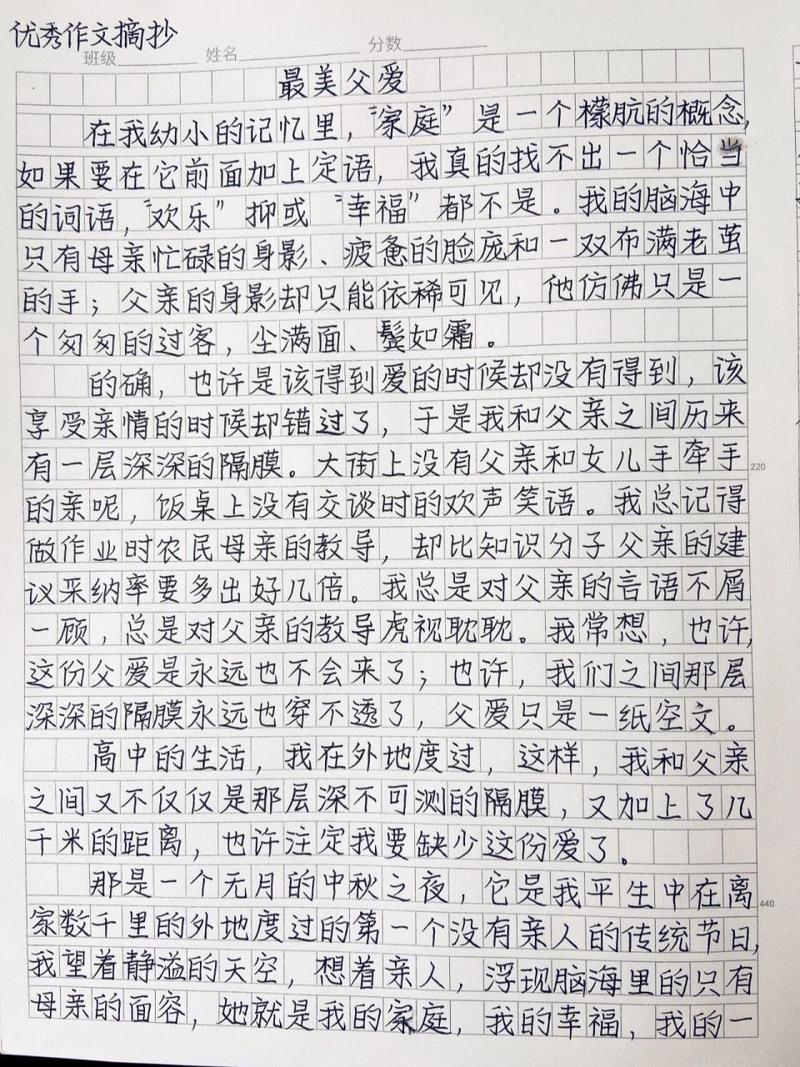 优秀作文摘抄
班级 姓名 分数
最美父爱
在我幼小的记忆里，“家庭”是一个檬肮的概念，
如果要在它前面加上定语，我真的找不出一个恰当
的词语，“欢乐”抑或“幸福”都不是。我的脑海中
只有母亲忙碌的身影、疲惫的脸庞和一双布满老茧
的手；父亲的身影却只能依稀可见，他仿佛只是一
个匆匆的过客，尘满面、鬓如霜。
的确，也许是该得到爱的时候却没有得到，该
享受亲情的时候却错过了，于是我和父亲之间历来
有一层深深的隔膜。大街上没有父亲和女儿手牵手
220
的亲呢，饭桌上没有交谈时的欢声笑语。我总记得
做作业时农民母亲的教导，却比知识分子父亲的建
议采纳率要多出好几倍。我总是对父亲的言语不屑
一顾，总是对父亲的教导虎视耽耽。我常想，也许，
这份父爱是永远也不会来了；也许，我们之间那层
深深的隔膜永远也穿不透了，父爱只是一纸空文。
高中的生活，我在外地度过，这样，我和父亲
之间又不仅仅是那层深不可测的隔膜，又加上了几
千米的距离，也许注定我要缺少这份爱了。
那是一个无月的中秋之夜，它是我平生中在离
440
家数千里的外地度过的第一个没有亲人的传统节日，
我望着静溢的天空，想着亲人，浮现脑海里的只有
母亲的面容，她就是我的家庭，我的幸福，我的一